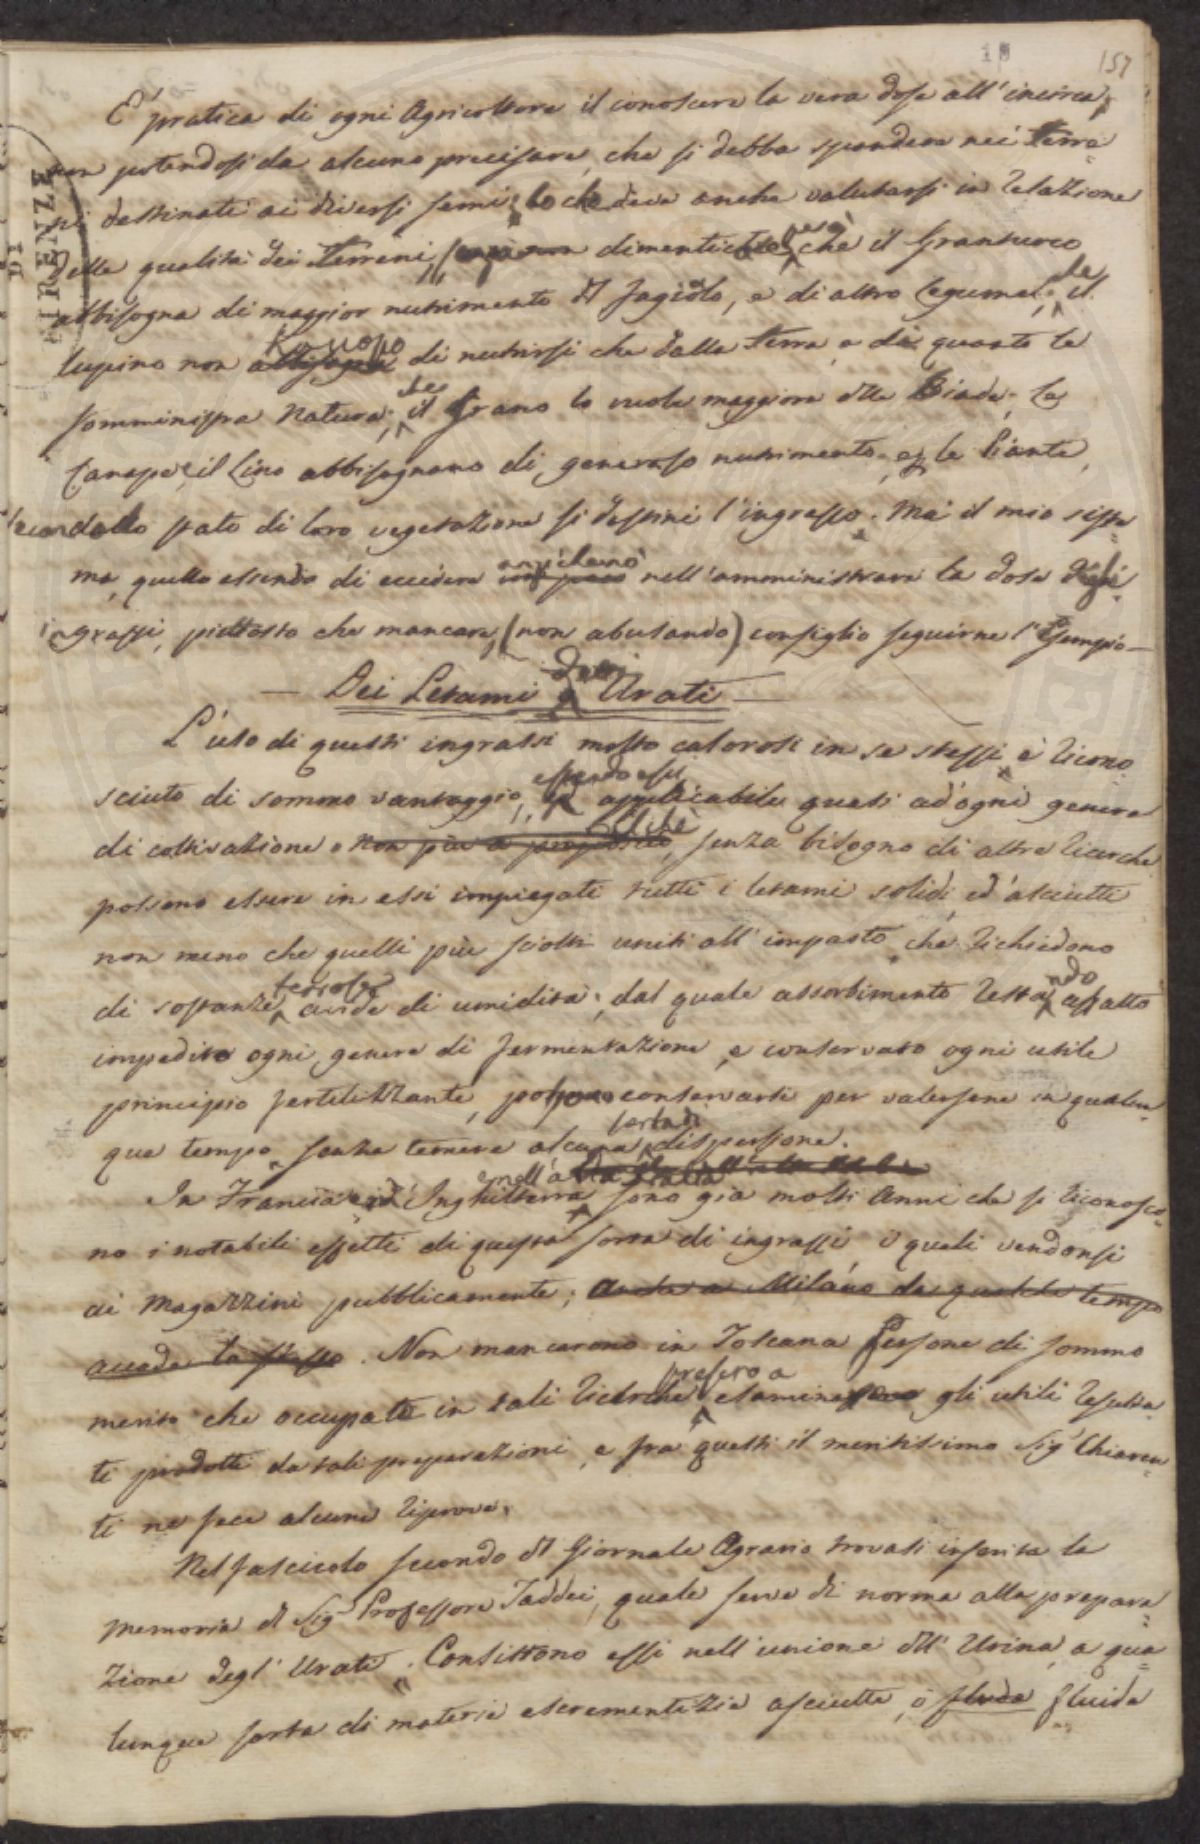 157
È pratica di ogni Agricoltore il conoscere la vera dose all'incirca,
non potendosi da alcuno precisare, che si debba spandere nei Terre=
ni destinati ai diversi semi; lo che deve anche valutarsi in relazione
delle qualità dei Terreni, dimentic però che il Granturco
abbisogna di maggior nutrimento dl fagiolo, e di altro Legume; se il
lupino non abbisogna di nutrirsi che dalla Terra, e di quanto le
somministra Natura; se il Grano lo vuole maggiore dlle Biade; la
Canape, e il Lino abbisognano di generoso nutrimento, e le Piante,
secondo lo stato di loro vegetazione si destini l'ingrasso. Ma il mio siste=
ma, quello essendo di eccedere anzichenò nell'amministrare la dose degli
ingrassi, piuttosto che mancare, (non abusando) consiglio seguirne l'Esempio—
— Dei Letami e degli Urati —
L'uso di questi ingrassi molto calorosi in se stessi, è ricono
sciuto di sommo vantaggio, essendo essi applicabili quasi ad ogni genere
di coltivazione non più a proposito, senza bisogno di altre ricerche
possono essere in essi impiegati tutti i letami solidi, ed asciutti
non meno che quelli più sciolti uniti all'impasto, che richiedono
di sostanze terrose avide di umidità; dal quale assorbimento restando affatto
impedito ogni genere di fermentazione, e conservato ogni utile
principio fertilizzante, possono conservarsi per valersene in qualun=
que tempo, senza temere alcuna sorta di dispersione.
In Francia, ed Inghilterra e nell'alta Italia sono già molti Anni che si riconosco=
no i notabili effetti di questa sorta di ingrassi i quali vendonsi
ai Magazzini pubblicamente; anche a Milano da qualche tempo
accade lo stesso. Non mancarono in Toscana Persone di sommo
merito che occupate in tali ricerche presero a esaminare gli utili resulta=
ti prodotti da tali preparazioni, e fra questi il meritissimo Sig.r Chiaren=
ti ne fece alcune riprove.
Nel fascicolo secondo dl Giornale Agrario trovasi inserita la
Memoria dl Sig.r Professore Taddei, quale serve di norma alla prepara=
zione degl'Urati. Consistono essi nell'unione dll'Urina, a qua=
lunque sorta di materia escrementizia asciutta, o fluida fluida
DI
FIRENZE